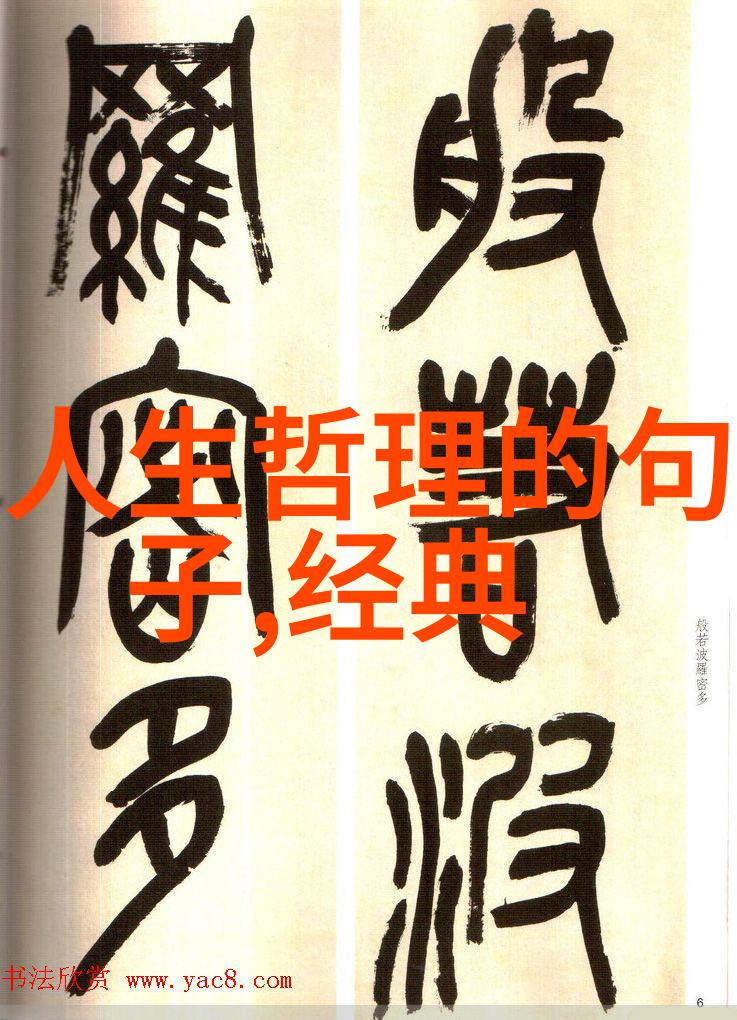 般若波
羅密多
人生哲理的句
子,经典
般若波羅密多
书法欣赏 www.yac8.com
6